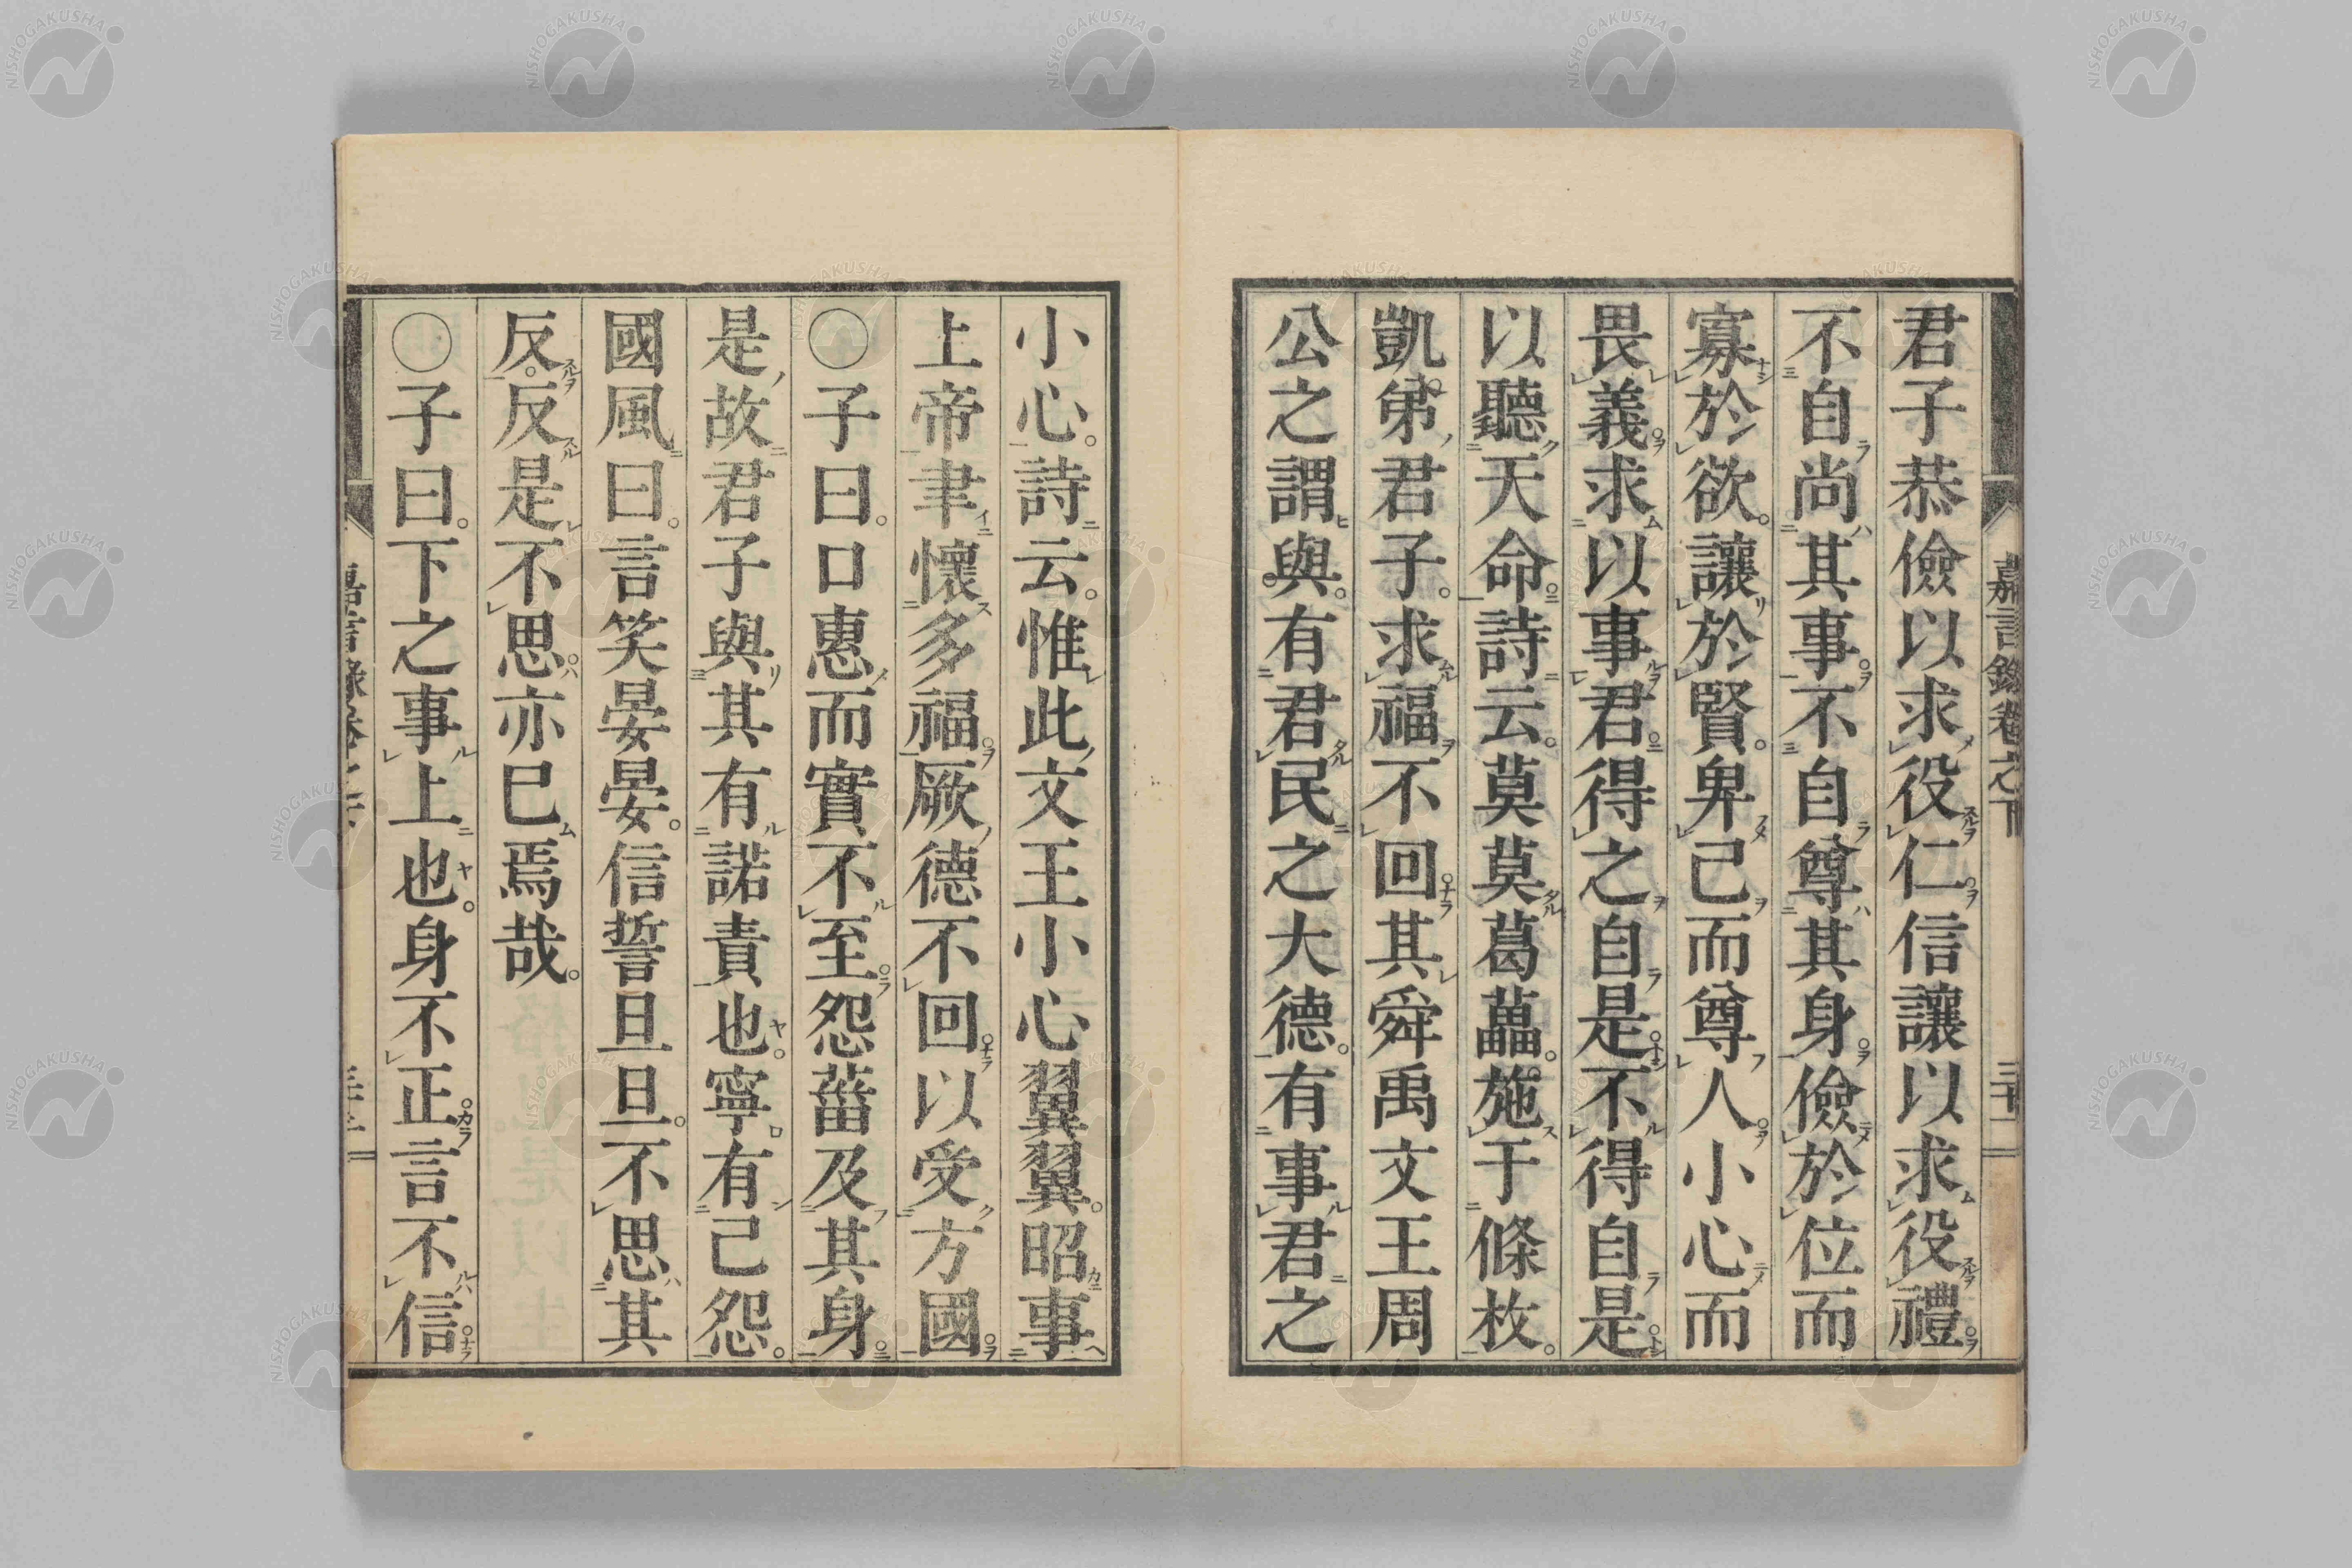 嘉言錄卷之下
三十二
君子恭儉以求役仁信讓以求役禮
不自尚其事不自尊其身儉於位而
寡於欲讓於賢卑己而尊人小心而
畏義求以事君得之自是不得自是
以聽天命詩云莫莫葛藟施于條枚
凱弟君子求福不回其舜禹文王周
公之謂與有君民之大德有事君之
小心詩云惟此文王小心翼翼昭事
上帝聿懷多福厥德不回以受方國
○子曰口惠而實不至怨菑及其身
是故君子與其有諾責也寧有己怨
國風曰言笑晏晏信誓旦旦不思其
反反是不思亦已焉哉
○子曰下之事上也身不正言不信
NISHOGAKUSHA